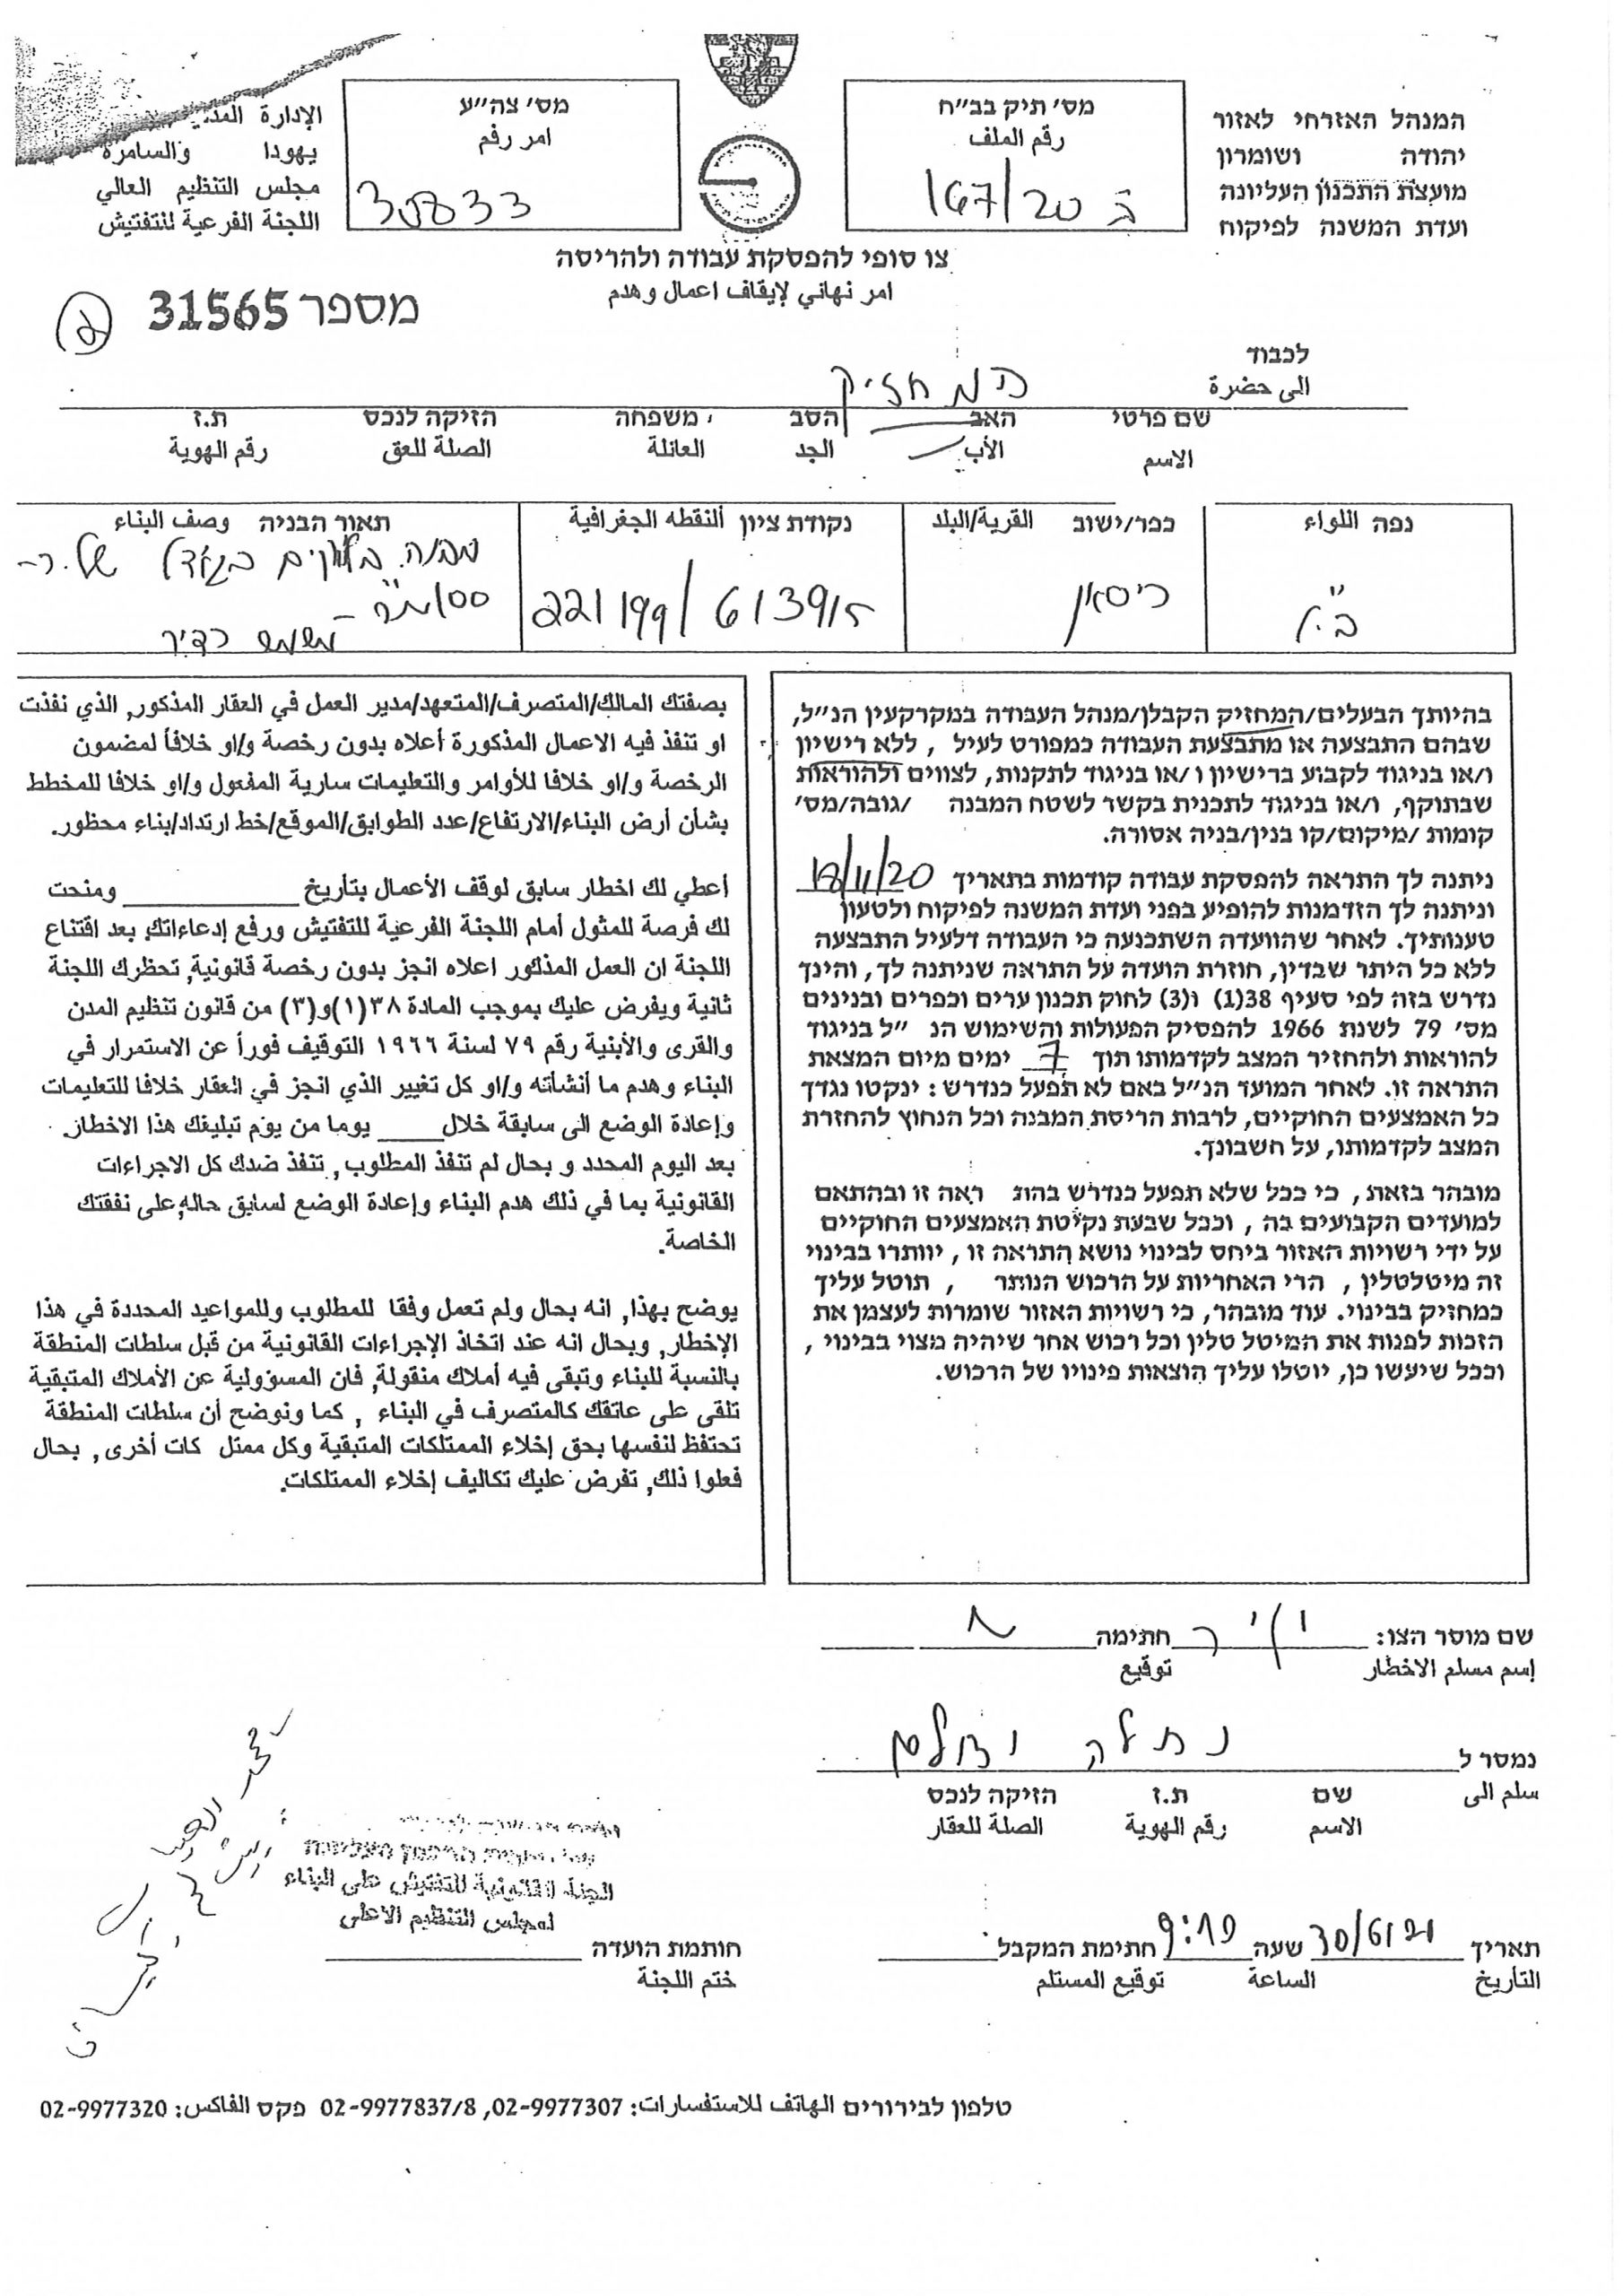 המנהל האזרחי לאזור
יהודה ושומרון
מועצת התכנון העליונה
ועדת המשנה לפיקוח
מס׳ תיק בב״ח
رقم الملف
ב 167/20
מס׳ צה״ע
امر رقم
30833
الإدارة
يهودا والسامرة
مجلس التنظيم العالي
اللجنة الفرعية للتفتيش
צו סופי להפסקת עבודה ולהריסה
امر نهائي لإيقاف اعمال وهدم
מספר 31565
לכבוד
الى حضرة
המחזיק
שם פרטי האב הסב משפחה הזיקה לנכס ת.ז
الاسم الأب الجد العائلة الصلة للعق رقم الهوية
נפה اللواء
ב״ל
כפר/ישוב القرية/البلد
כיסאן
נקודת ציון النقطه الجغرافية
221199/613915
תאור הבניה وصف البناء
מבנה בלוקים בגודל של כ-
100 מ״ר -
משמש כדיר
בהיותך הבעלים/המחזיק הקבלן/מנהל העבודה במקרקעין הנ״ל,
שבהם התבצעה או מתבצעת העבודה כמפורט לעיל , ללא רישיון
ו/או בניגוד לקבוע ברישיון ו/או בניגוד לתקנות, לצווים ולהוראות
שבתוקף, ו/או בניגוד לתכנית בקשר לשטח המבנה /גובה/מס׳
קומות /מיקום/קו בנין/בניה אסורה.
ניתנה לך התראה להפסקת עבודה קודמות בתאריך 18/11/20
וניתנה לך הזדמנות להופיע בפני ועדת המשנה לפיקוח ולטעון
טענותיך. לאחר שהוועדה השתכנעה כי העבודה דלעיל התבצעה
ללא כל היתר שבדין, חוזרת הועדה על התראה שניתנה לך, והינך
נדרש בזה לפי סעיף 38(1) ו(3) לחוק תכנון ערים וכפרים ובנינים
מס׳ 79 לשנת 1966 להפסיק הפעולות והשימוש הנ ״ל בניגוד
להוראות ולהחזיר המצב לקדמותו תוך 7 ימים מיום המצאת
התראה זו. לאחר המועד הנ״ל באם לא תפעל כנדרש : ינקטו נגדך
כל האמצעים החוקיים, לרבות הריסת המבנה וכל הנחוץ להחזרת
המצב לקדמותו, על חשבונך.
מובהר בזאת, כי ככל שלא תפעל כנדרש בהת ראה זו ובהתאם
למועדים הקבועים בה , וככל שבעת נקיטת האמצעים החוקיים
על ידי רשויות האזור ביחס לבינוי נושא התראה זו , יוותרו בבינוי
זה מיטלטלין , הרי האחריות על הרכוש הנותר , תוטל עליך
כמחזיק בבינוי. עוד מובהר, כי רשויות האזור שומרות לעצמן את
הזכות לפנות את המיטל טלין וכל רכוש אחר שיהיה מצוי בבינוי ,
וככל שיעשו כן, יוטלו עליך הוצאות פינויו של הרכוש.
بصفتك المالك/المتصرف/المتعهد/مدير العمل في العقار المذكور, الذي نفذت
او تنفذ فيه الاعمال المذكورة أعلاه بدون رخصة و/او خلافاً لمضمون
الرخصة و/او خلافا للأوامر والتعليمات سارية المفعول و/او خلافا للمخطط
بشأن أرض البناء/الارتفاع/عدد الطوابق/الموقع/خط ارتداد/بناء محظور.
أعطي لك اخطار سابق لوقف الأعمال بتأريخ ________ ومنحت
لك فرصة للمثول أمام اللجنة الفرعية للتفتيش ورفع إدعاءاتك. بعد اقتناع
اللجنة ان العمل المذكور اعلاه انجز بدون رخصة قانونية, تحظرك اللجنة
ثانية ويفرض عليك بموجب المادة ٣٨(١)و(٣) من قانون تنظيم المدن
والقرى والأبنية رقم ٧٩ لسنة ١٩٦٦ التوقيف فوراً عن الاستمرار في
البناء وهدم ما أنشأته و/او كل تغيير الذي انجز في العقار خلافا للتعليمات
وإعادة الوضع الى سابقة خلال____ يوما من يوم تبليغك هذا الاخطار.
بعد اليوم المحدد و بحال لم تنفذ المطلوب, تنفذ ضدك كل الاجراءات
القانونية بما في ذلك هدم البناء وإعادة الوضع لسابق حاله, على نفقتك
الخاصة.
يوضح بهذا, انه بحال ولم تعمل وفقا للمطلوب وللمواعيد المحددة في هذا
الإخطار, وبحال انه عند اتخاذ الإجراءات القانونية من قبل سلطات المنطقة
بالنسبة للبناء وتبقى فيه أملاك منقولة, فان المسؤولية عن الأملاك المتبقية
تلقى على عاتقك كالمتصرف في البناء , كما ونوضح أن سلطات المنطقة
تحتفظ لنفسها بحق إخلاء الممتلكات المتبقية وكل ممتل كات أخرى, بحال
فعلوا ذلك, تفرض عليك تكاليف إخلاء الممتلكات.
שם מוסר הצו: חתימה
إسم مسلم الاخطار توقيع
נמסר ל
سلم الى
שם ת.ז הזיקה לנכס
الاسم رقم الهوية الصلة للعقار
الجنة القانونية للتفتيش على البناء
لمجلس التنظيم الاعلى
תאריך 30/6/21 שעה 9:19 חתימת המקבל
التأريخ الساعة توقيع المستلم
חותמת הועדה
ختم اللجنة
טלפון לבירורים الهاتف للاستفسارات: 02-9977307, 02-9977837/8 פקס الفاكس: 02-9977320